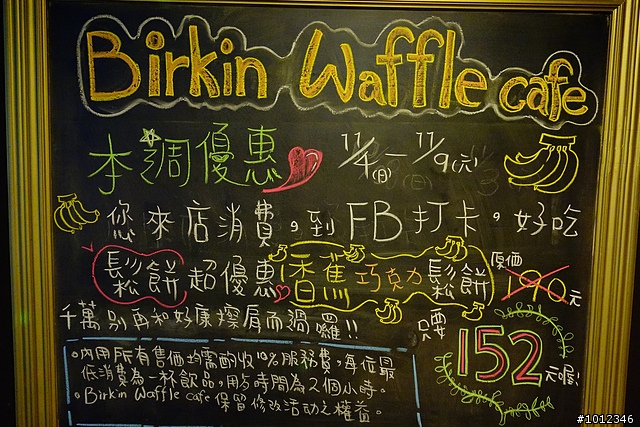 Birkin Waffle cafe
本週優惠 11/4(日)－11/9(六)
您來店消費，到FB打卡。好吃
鬆餅超優惠 香蕉巧克力鬆餅 原價190元
千萬別再和好康擦肩而過囉!! 只要152元喔!
。內用所有售價均需酌收10%服務費，每位最
低消費為一杯飲品，用方時間為2個小時。
。Birkin Waffle cafe 保留修改活動之權益。
#1012346